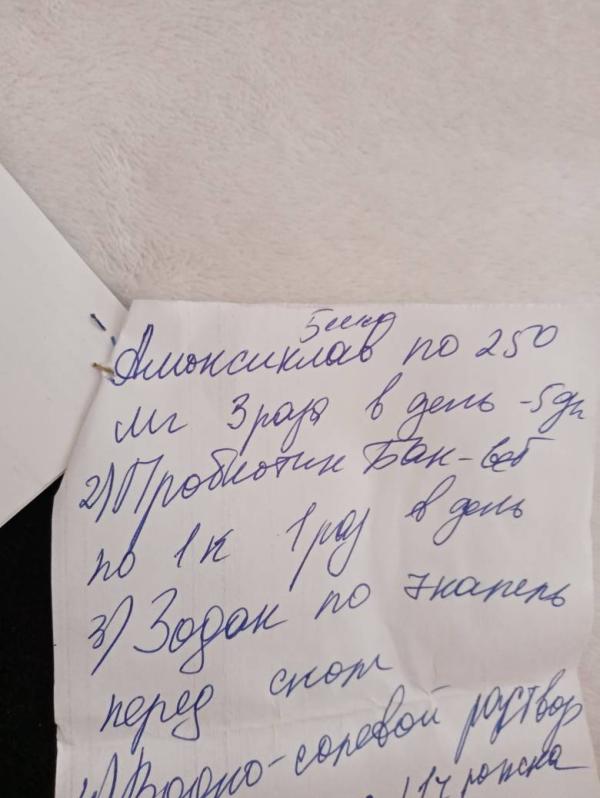 Амоксиклав по 250
мг 3 раза в день -5дн
2) Пробиотик Бак-сет
по 1к 1 раз в день
3) Зодак по 7 капель
перед сном
4) Водно-солевой раствор